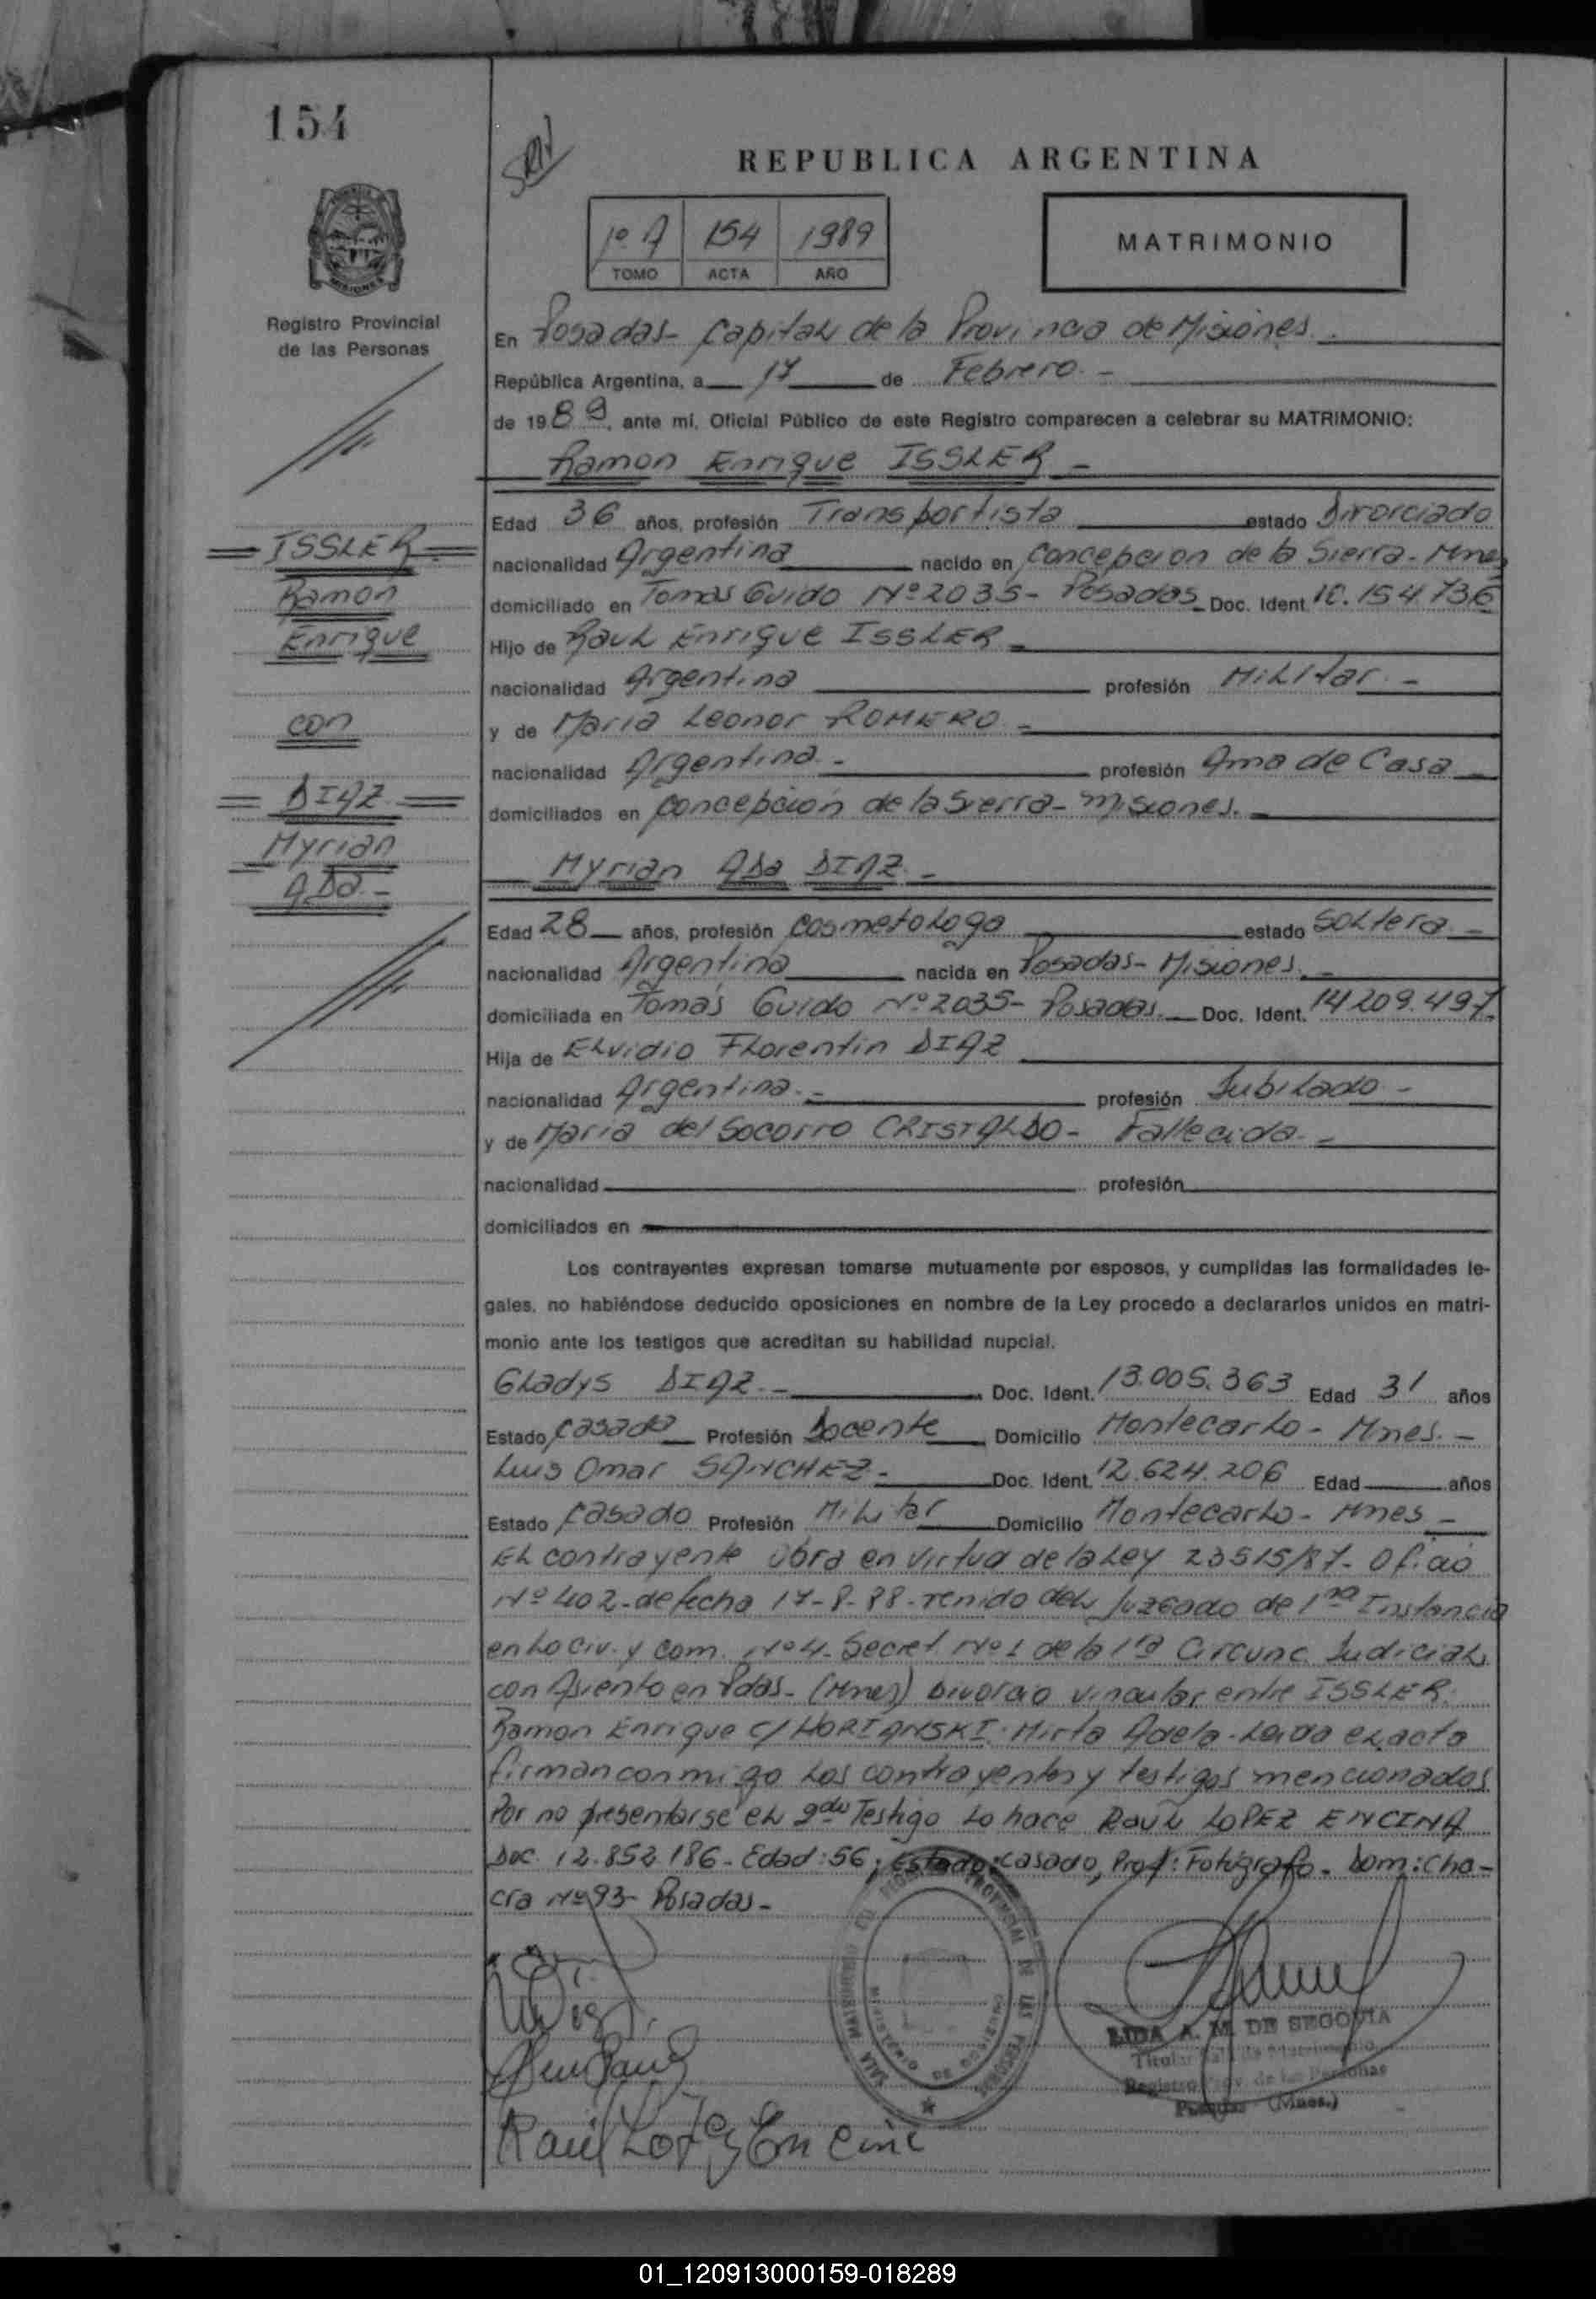 154
REPUBLICA ARGENTINA
1º A 154 1989
TOMO ACTA AÑO
MATRIMONIO
MISIONES
Registro Provincial
de las Personas
En Posadas- Capital de la Provincia de Misiones.-
República Argentina, a 17 de Febrero.-
de 1989, ante mí, Oficial Público de este Registro comparecen a celebrar su MATRIMONIO:
Ramon Enrique ISSLER -
Edad 36 años, profesión Transportista estado Divorciado
nacionalidad Argentina nacido en Concepcion de la Sierra- Mnes
domiciliado en Tomas Guido Nº 2035- Posadas Doc. Ident. 10.154.736
Hijo de Raul Enrique ISSLER -
nacionalidad Argentina profesión Militar.-
y de Maria Leonor ROMERO -
nacionalidad Argentina.- profesión Ama de Casa
domiciliados en Concepción de la Sierra- Misiones.
Myrian Ada DIAZ.-
Edad 28 años, profesión Cosmetologa estado Soltera -
nacionalidad Argentina nacida en Posadas- Misiones.-
domiciliada en Tomás Guido Nº 2035- Posadas. Doc. Ident. 14.209.497.
Hija de Elvidio Florentin DIAZ
nacionalidad Argentina.- profesión Jubilado -
y de Maria del Socorro CRISTALDO- Fallecida.-
nacionalidad profesión
domiciliados en
Los contrayentes expresan tomarse mutuamente por esposos, y cumplidas las formalidades le-
gales, no habiéndose deducido oposiciones en nombre de la Ley procedo a declararlos unidos en matri-
monio ante los testigos que acreditan su habilidad nupcial.
Gladys DIAZ.- Doc. Ident. 13.005.363 Edad 31 años
Estado Casada Profesión Docente Domicilio Montecarlo- Mnes.-
Luis Omar SANCHEZ- Doc. Ident. 12.624.206 Edad años
Estado Casado Profesión Militar Domicilio Montecarlo- Mnes -
El contrayente obra en virtud de la Ley 23515/87- Oficio
Nº 402- de fecha 17-8-88- del Juzgado de 1ra Instancia
en lo Civ. y Com. Nº 4- Secret. Nº 1 de la 1ra Circunc. Judicial
con Asiento en Pdas- (Mnes) Divorcio vincular entre ISSLER
Ramon Enrique c/ HORIANSKI Mirta Adela- Leida el acta
firman conmigo los contrayentes y testigos mencionados
Por no presentarse el 2do Testigo lo hace Raúl LOPEZ ENCINA
Doc. 12.852.186- Edad: 56; Estado: casado, Prof: Fotógrafo- Dom: Cha-
cra Nº 93- Posadas-
Raúl López Encina
LIDA A. M. DE SEGOVIA
Titular Sala de Matrimonio
Registro Prov. de las Personas
Posadas (Mnes.)
REGISTRO PROVINCIAL DE LAS PERSONAS
MINISTERIO DE GOBIERNO
ISSLER
Ramon
Enrique
con
DIAZ
Myrian
Ada.-
01_120913000159-018289